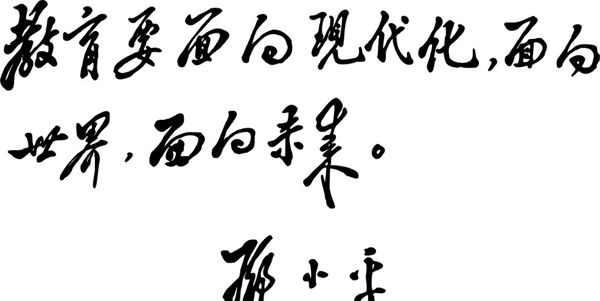 教育要面向現代化,面向
世界,面向未来。
邓小平